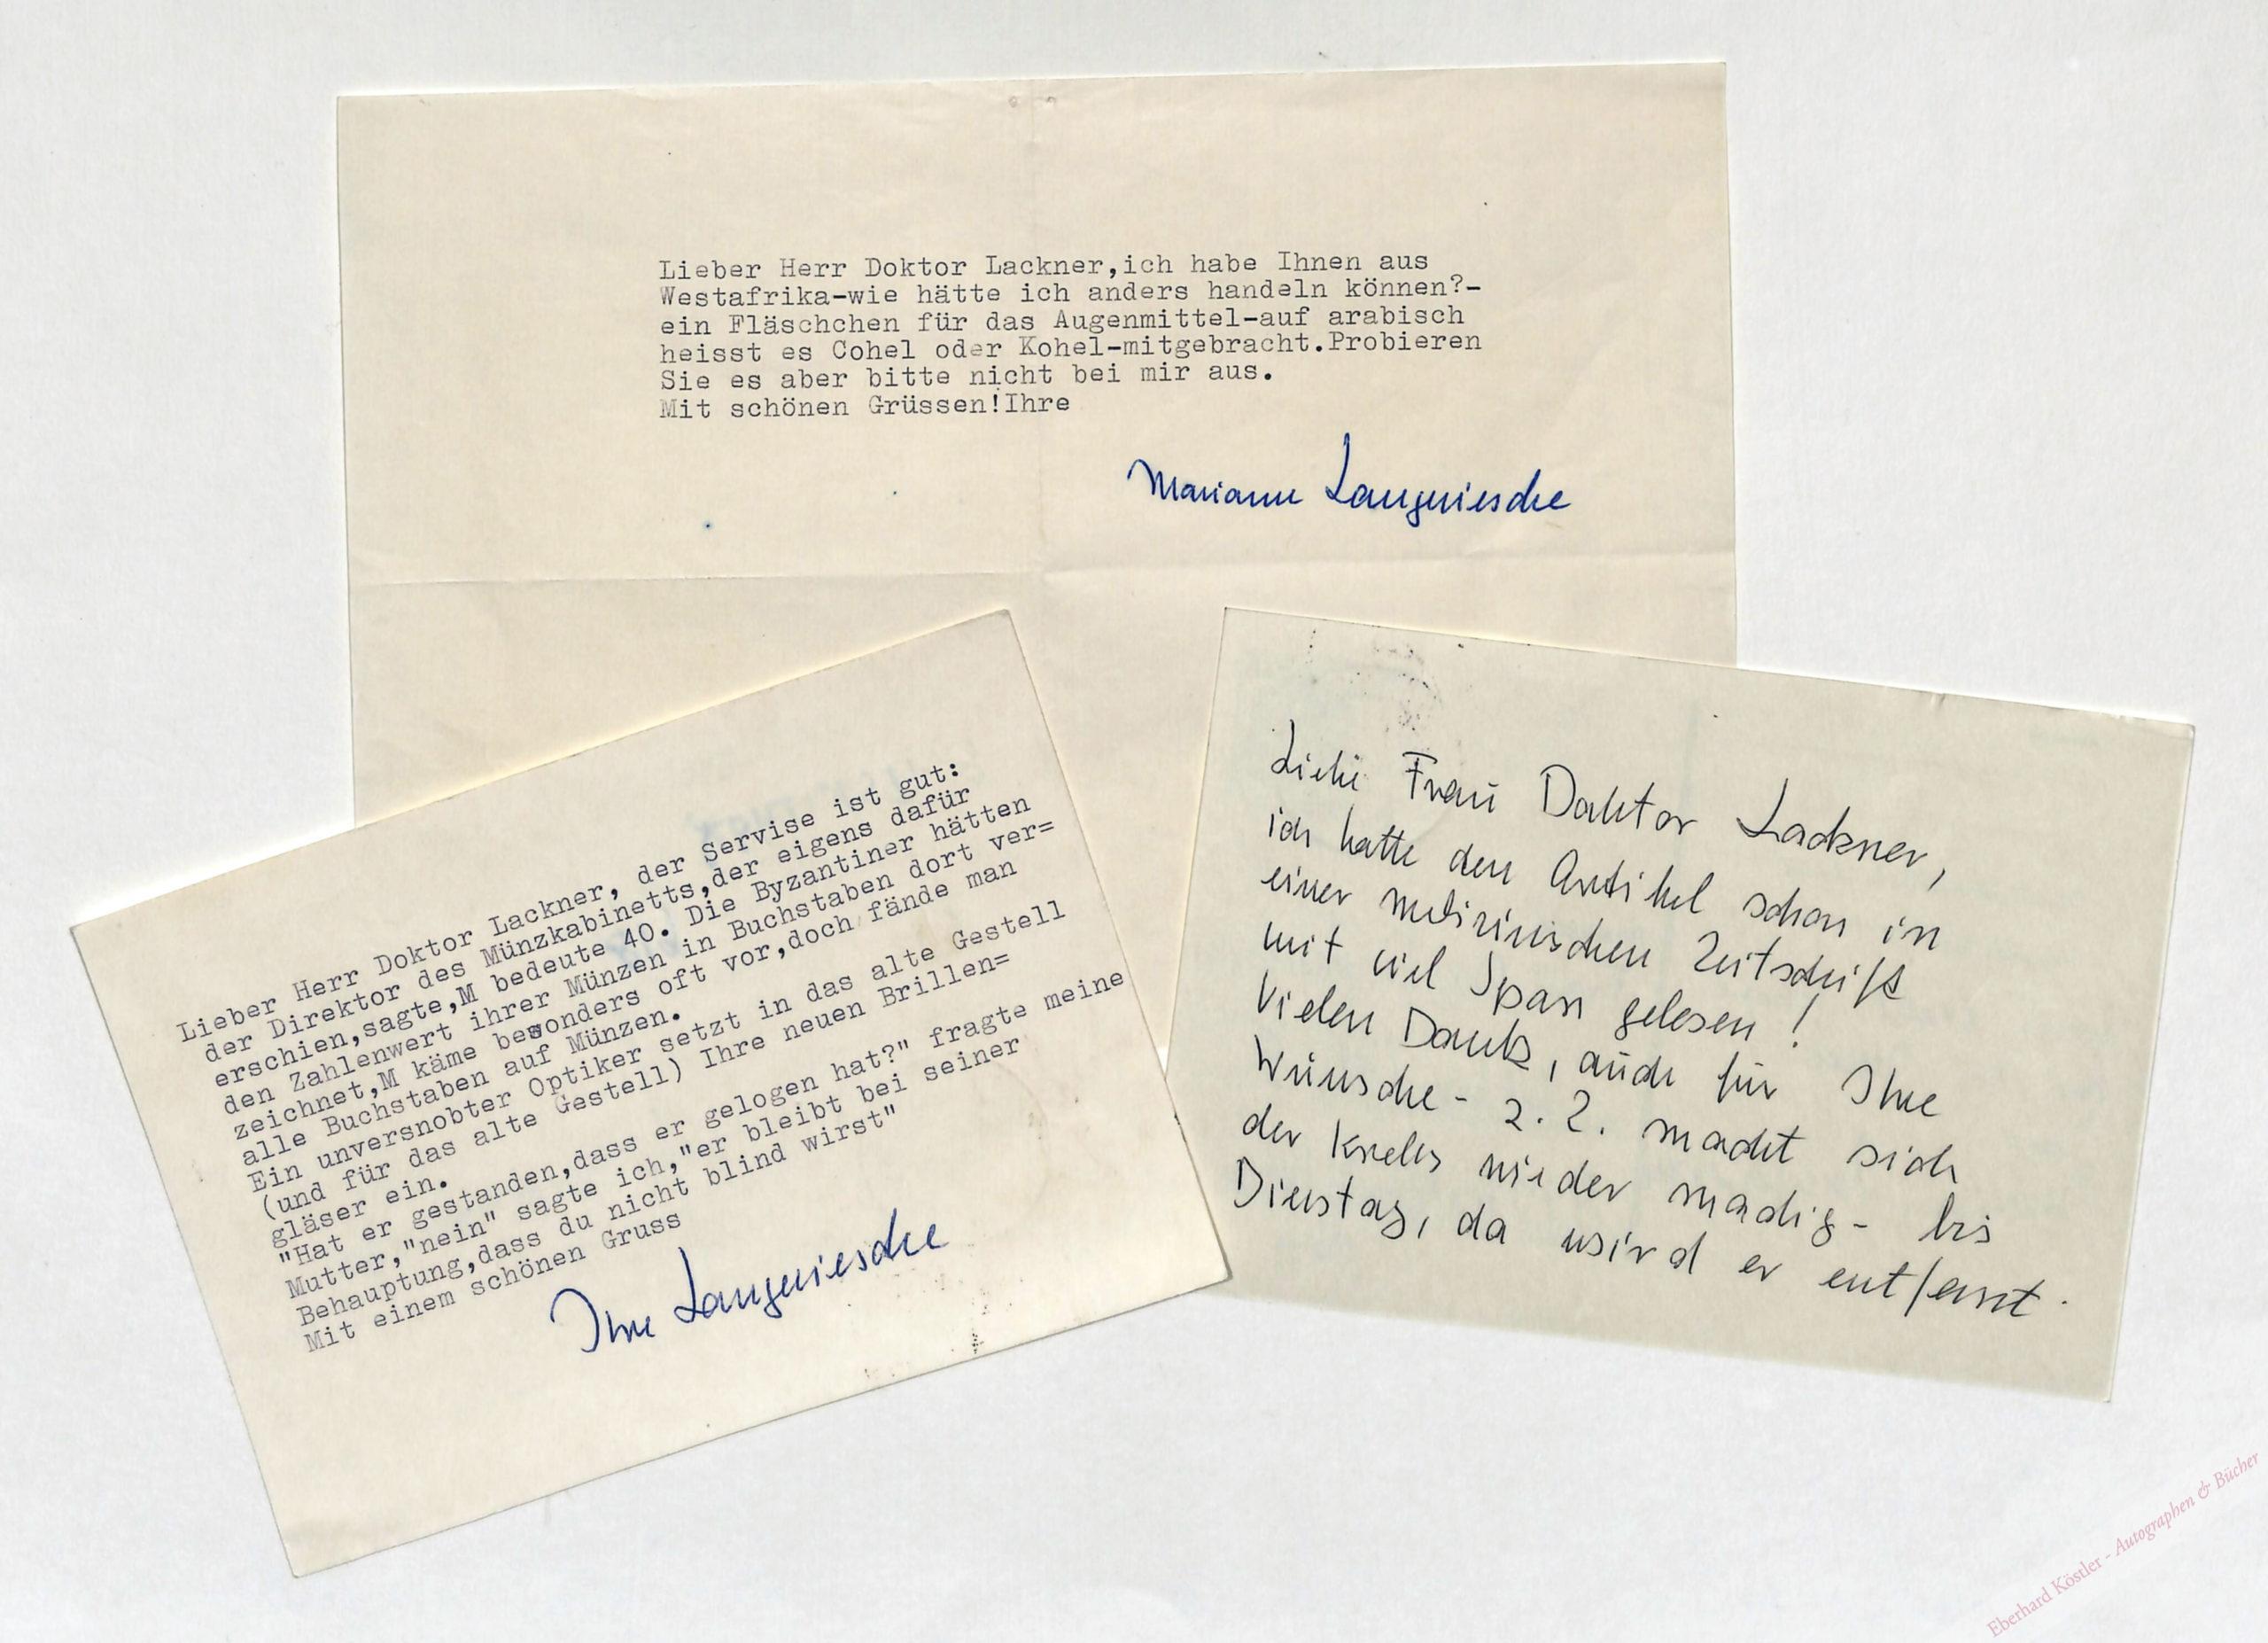 Lieber Herr Doktor Lackner,ich habe Ihnen aus
Westafrika-wie hätte ich anders handeln können?-
ein Fläschchen für das Augenmittel-auf arabisch
heisst es Cohel oder Kohel-mitgebracht.Probieren
Sie es aber bitte nicht bei mir aus.
Mit schönen Grüssen!Ihre
Marianne Langewiesche
Lieber Herr Doktor Lackner, der Servise ist gut:
der Direktor des Münzkabinetts,der eigens dafür
erschien,sagte,M bedeute 40. Die Byzantiner hätten
den Zahlenwert ihrer Münzen in Buchstaben dort ver=
zeichnet,M käme besonders oft vor,doch fände man
alle Buchstaben auf Münzen.
Ein unversnobter Optiker setzt in das alte Gestell
(und für das alte Gestell) Ihre neuen Brillen=
gläser ein.
"Hat er gestanden,dass er gelogen hat?" fragte meine
Mutter,"nein" sagte ich,"er bleibt bei seiner
Behauptung,dass du nicht blind wirst"
Mit einem schönen Gruss
Ihre Langewiesche
Liebe Frau Doktor Lackner,
ich hatte den Artikel schon in
einer medizinischen Zeitschrift
mit viel Spass gelesen!
Vielen Dank, auch für Ihre
Wünsche - z. Z. macht sich
der Krebs wieder madig - bis
Dienstag, da wird er entfernt.
Eberhard Köstler - Autographen & Bücher